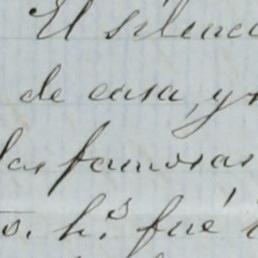 El silenc
de casa, y
las famosas
o. h.s fué